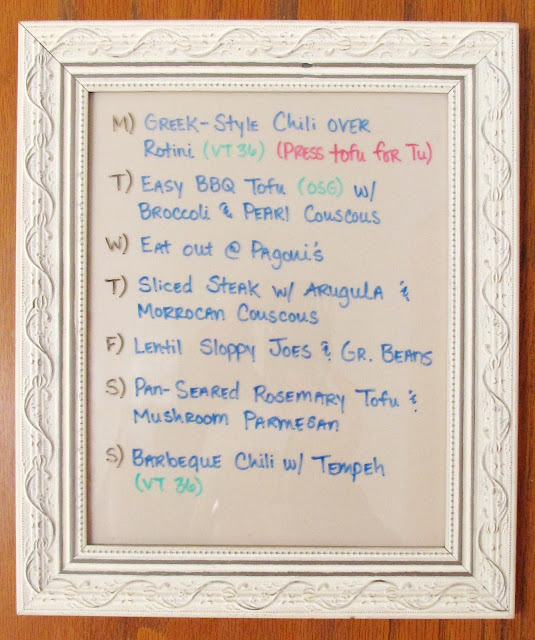 M) GREEK-Style Chili OVER
Rotini (VT 36) (PRESS tofu for Tu)
T) EASY BBQ Tofu (OSG) w/
BROCCOli & PEARl Couscous
W) Eat out @ Pagoni's
T) Sliced STEAK w/ ARUGULA &
MORROCAN COUSCOUS
F) Lentil Sloppy JOES & GR. BEANS
S) PAN-SEARED ROSEMARY Tofu &
Mushroom PARMESAN
S) BARBEQUE Chili w/ TEMPEh
(VT 36)